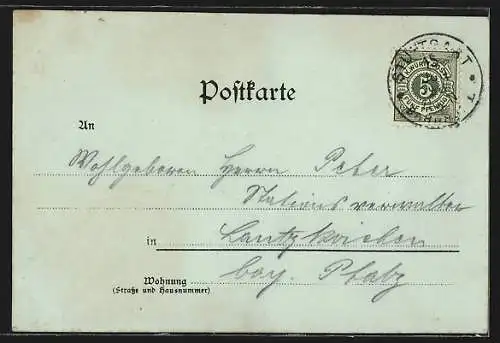 STUTTGART
5
FÜNF PFENNIG
Postkarte
An
Wohlgeboren Herrn Peter
Stationsverwalter
in Lautzkirchen
bay. Pfalz
Wohnung
(Straße und Hausnummer)